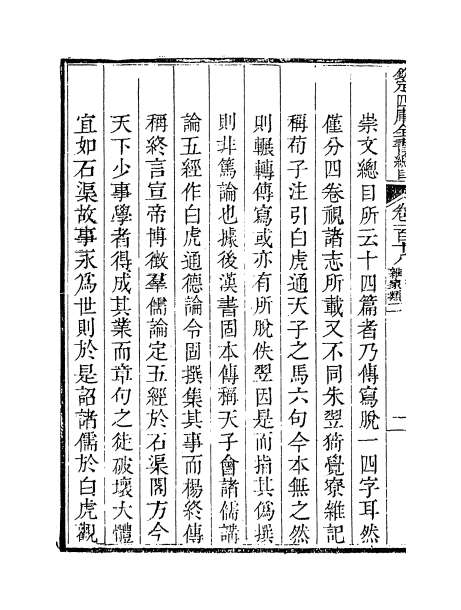 欽定四庫全書總目 卷一百十八 雜家類二 一
崇文總目所云十四篇者乃傳寫脫一四字耳然
僅分四卷視諸志所載又不同朱翌猗覺寮雜記
稱荀子注引白虎通天子之馬六句今本無之然
則輾轉傳寫或亦有所脫佚翌因是而指其偽撰
則非篤論也據後漢書固本傳稱天子會諸儒講
論五經作白虎通德論令固撰集其事而楊終傳
稱終言宣帝博徵羣儒論定五經於石渠閣方今
天下少事學者得成其業而章句之徒破壞大體
宜如石渠故事永為世則於是詔諸儒於白虎觀